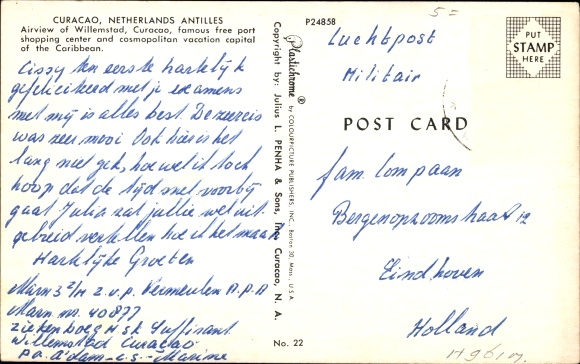 CURACAO, NETHERLANDS ANTILLES
Airview of Willemstad, Curacao, famous free port
shopping center and cosmopolitan vacation capital
of the Caribbean.
Cissy ten eerste hartelijk
gefeliciteerd met je examens
met mij is alles best. De zeereis
was zeer mooi Ook hier is het
lang niet gek, hoewel ik toch
hoop dat de tijd snel voorbij
gaat Julia zal jullie wel uit-
gebreid vertellen hoe ik het maak
Hartelijke Groeten
Marn 3 z/m z.v.p. Vermeulen A.P.A
Marn nr. 40877
Ziekenboeg H.S.K Suffisant
Willemstad Curacao
p.a. A'dam - C.S. - Marine
Copyright by: Julius L. PENHA & Sons, Inc. Curacao, N. A.
No. 22
Plastichrome ® by COLOURPICTURE PUBLISHERS, INC., Boston 30, Mass., U.S.A.
P24858
5 =
PUT
STAMP
HERE
Luchtpost
Militair
POST CARD
fam Lompaan
Bergenopzoomstraat 12
Eindhoven
Holland